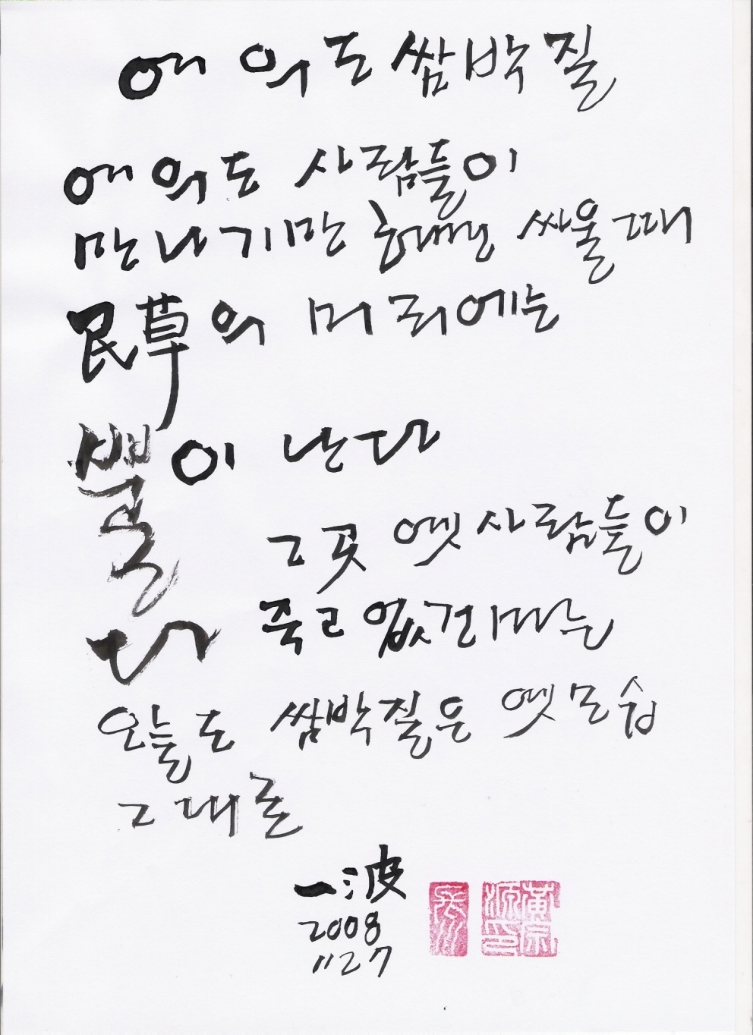 애의도 쌈박질
애의도 사람들이
만나기만 하면 싸울때
民草의 머리에는
뿔이 난다
그곳 옛사람들이
죽고 없건마는
다
오늘도 쌈박질은 옛모습
그대로
一波
2008
11 27